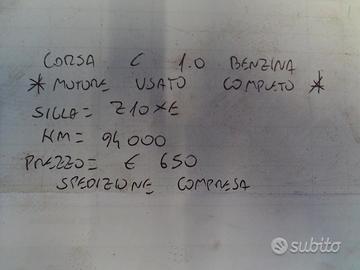 CORSA C 1.0 BENZINA
* MOTORE USATO COMPLETO *
SIGLA= Z10XE
KM= 94000
PREZZO= € 650
SPEDIZIONE COMPRESA
subito